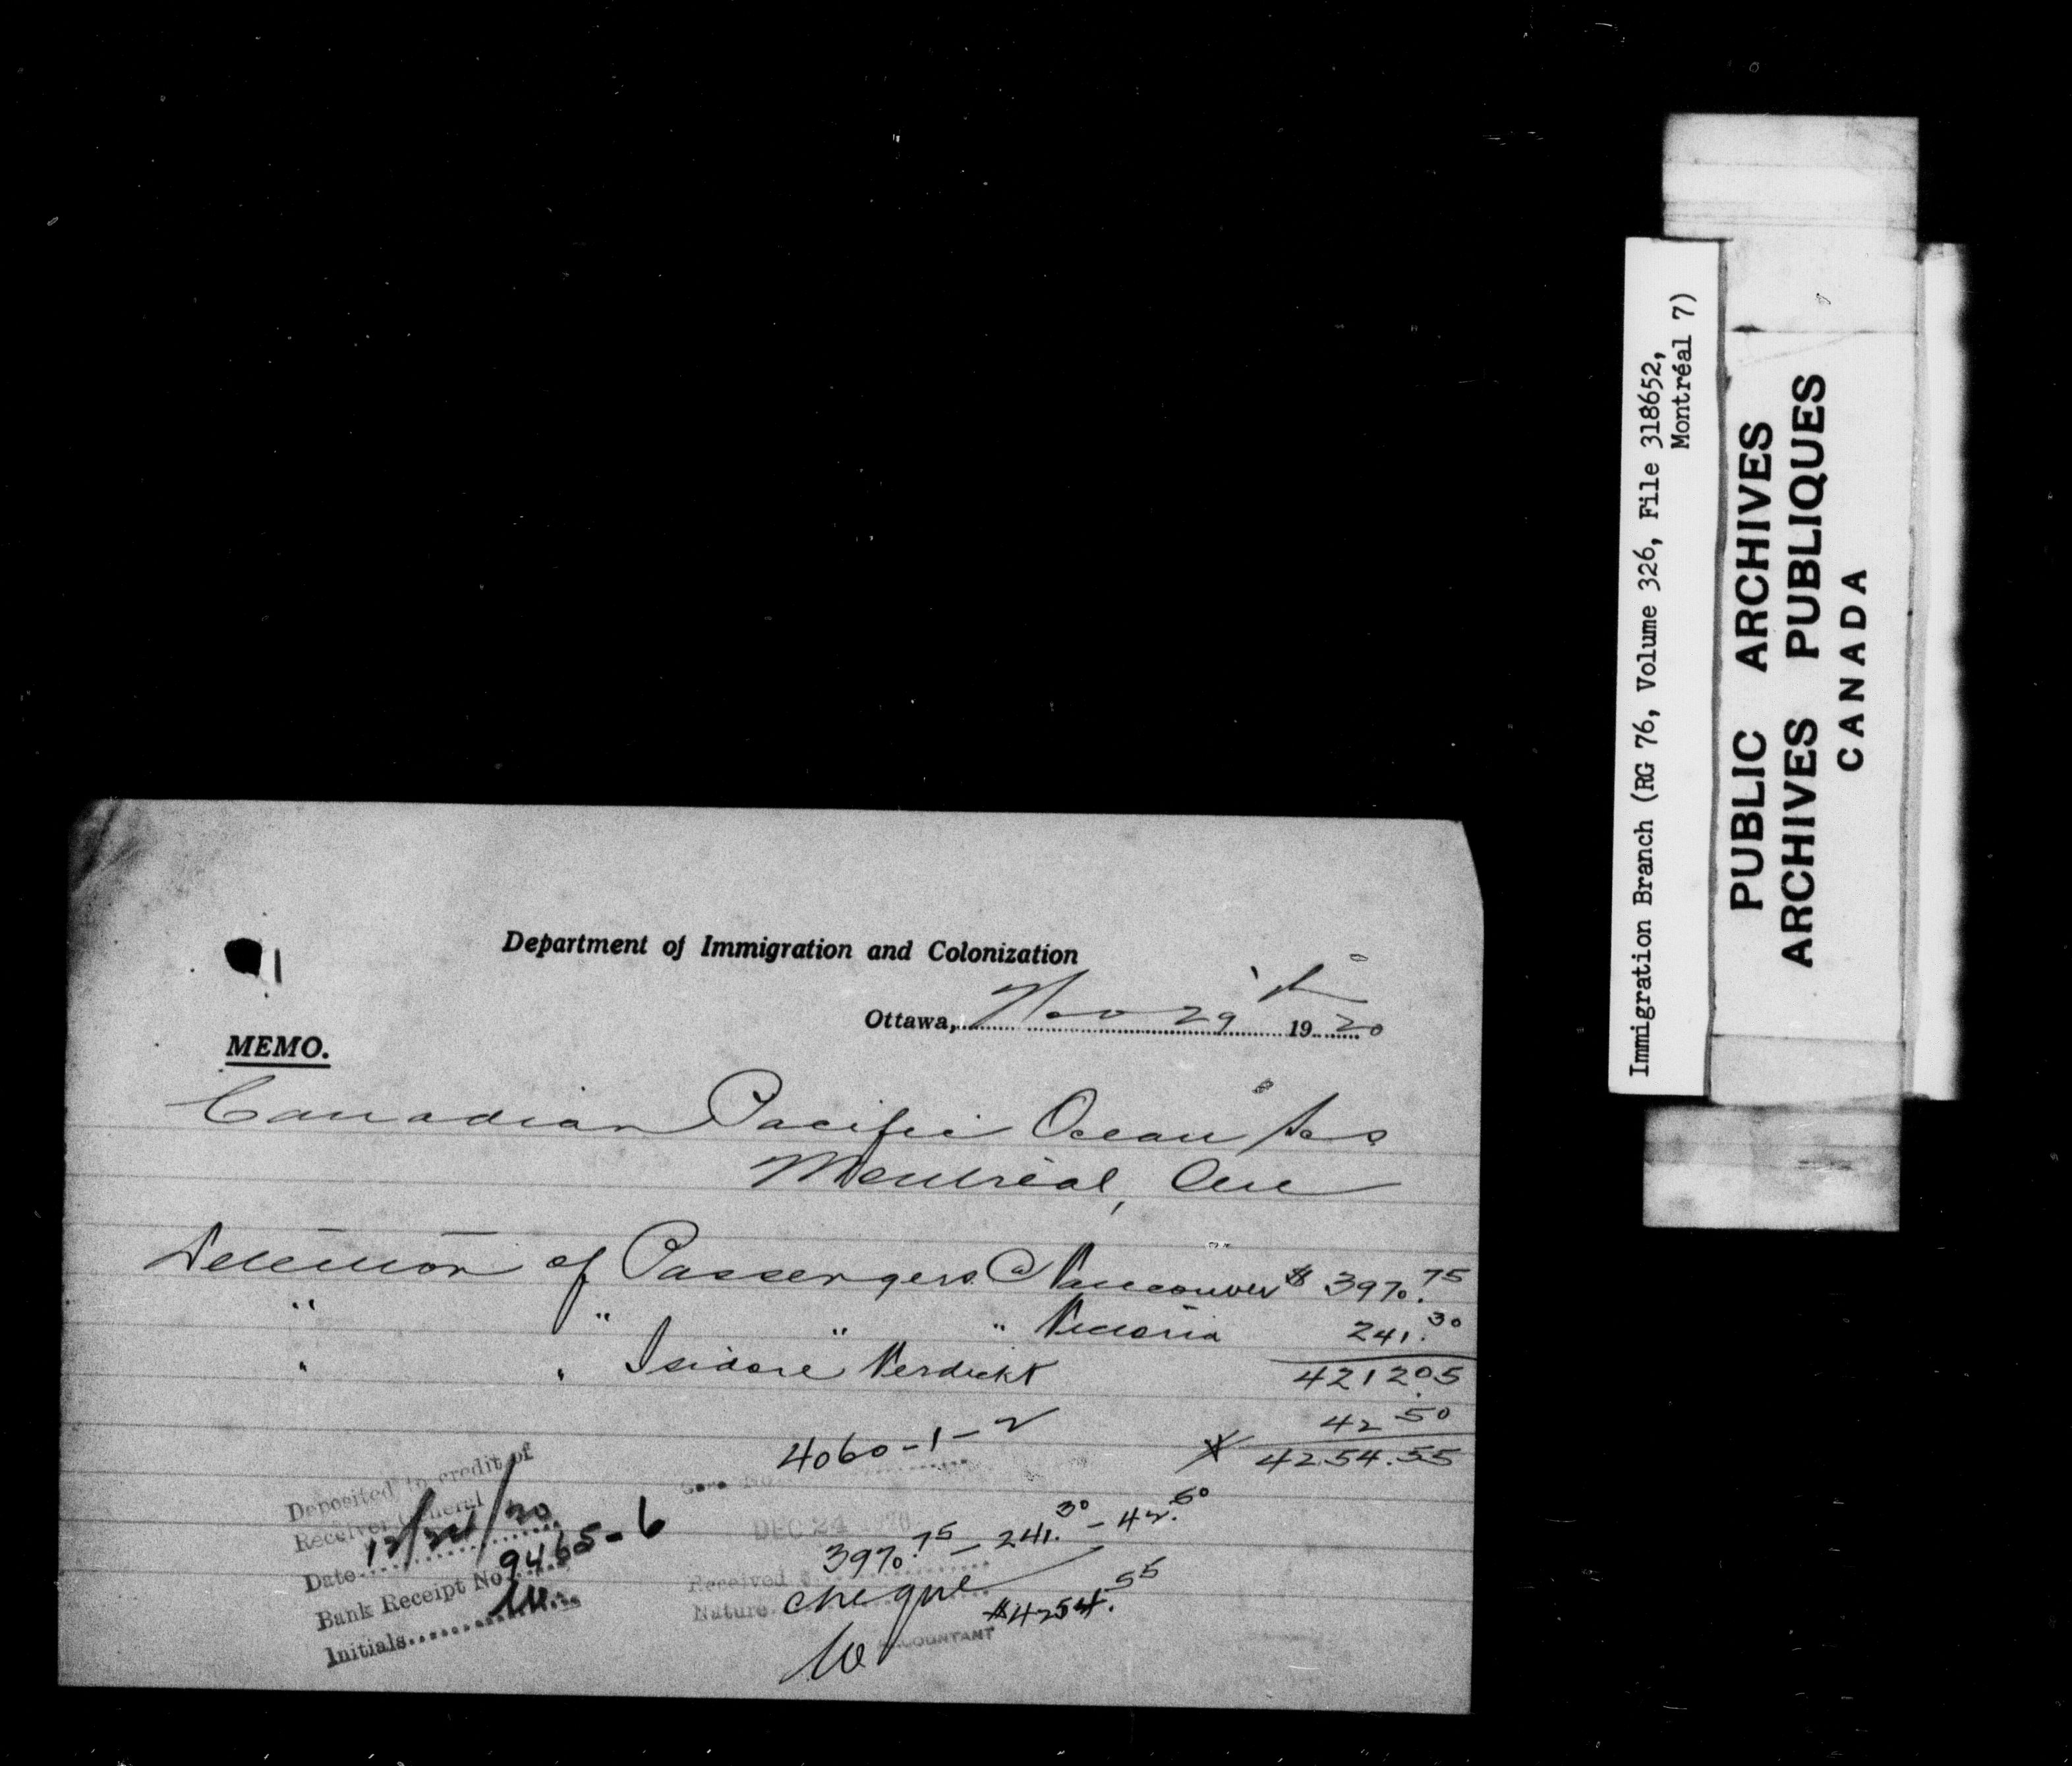 Department of Immigration and Colonization
Ottawa, Nov 29th 1920
MEMO.
Canadian Pacific Ocean Scs
Montreal, Que
Detention of Passengers @ Vancouver $ 3970.75
" " " " Victoria 241.30
4212.05
" " Isidore Verdickt
42 50
4254.55
4060-1-2
Deposited to credit of
Receiver General
Date 12/24/20
Bank Receipt No 9465-6
Initials
DEC 24
3970.75 - 241.30 - 42.50
Received $
Nature cheque
$4254.55
ACCOUNTANT
Immigration Branch (RG 76, Volume 326, File 318652,
Montréal 7)
PUBLIC ARCHIVES
ARCHIVES PUBLIQUES
CANADA